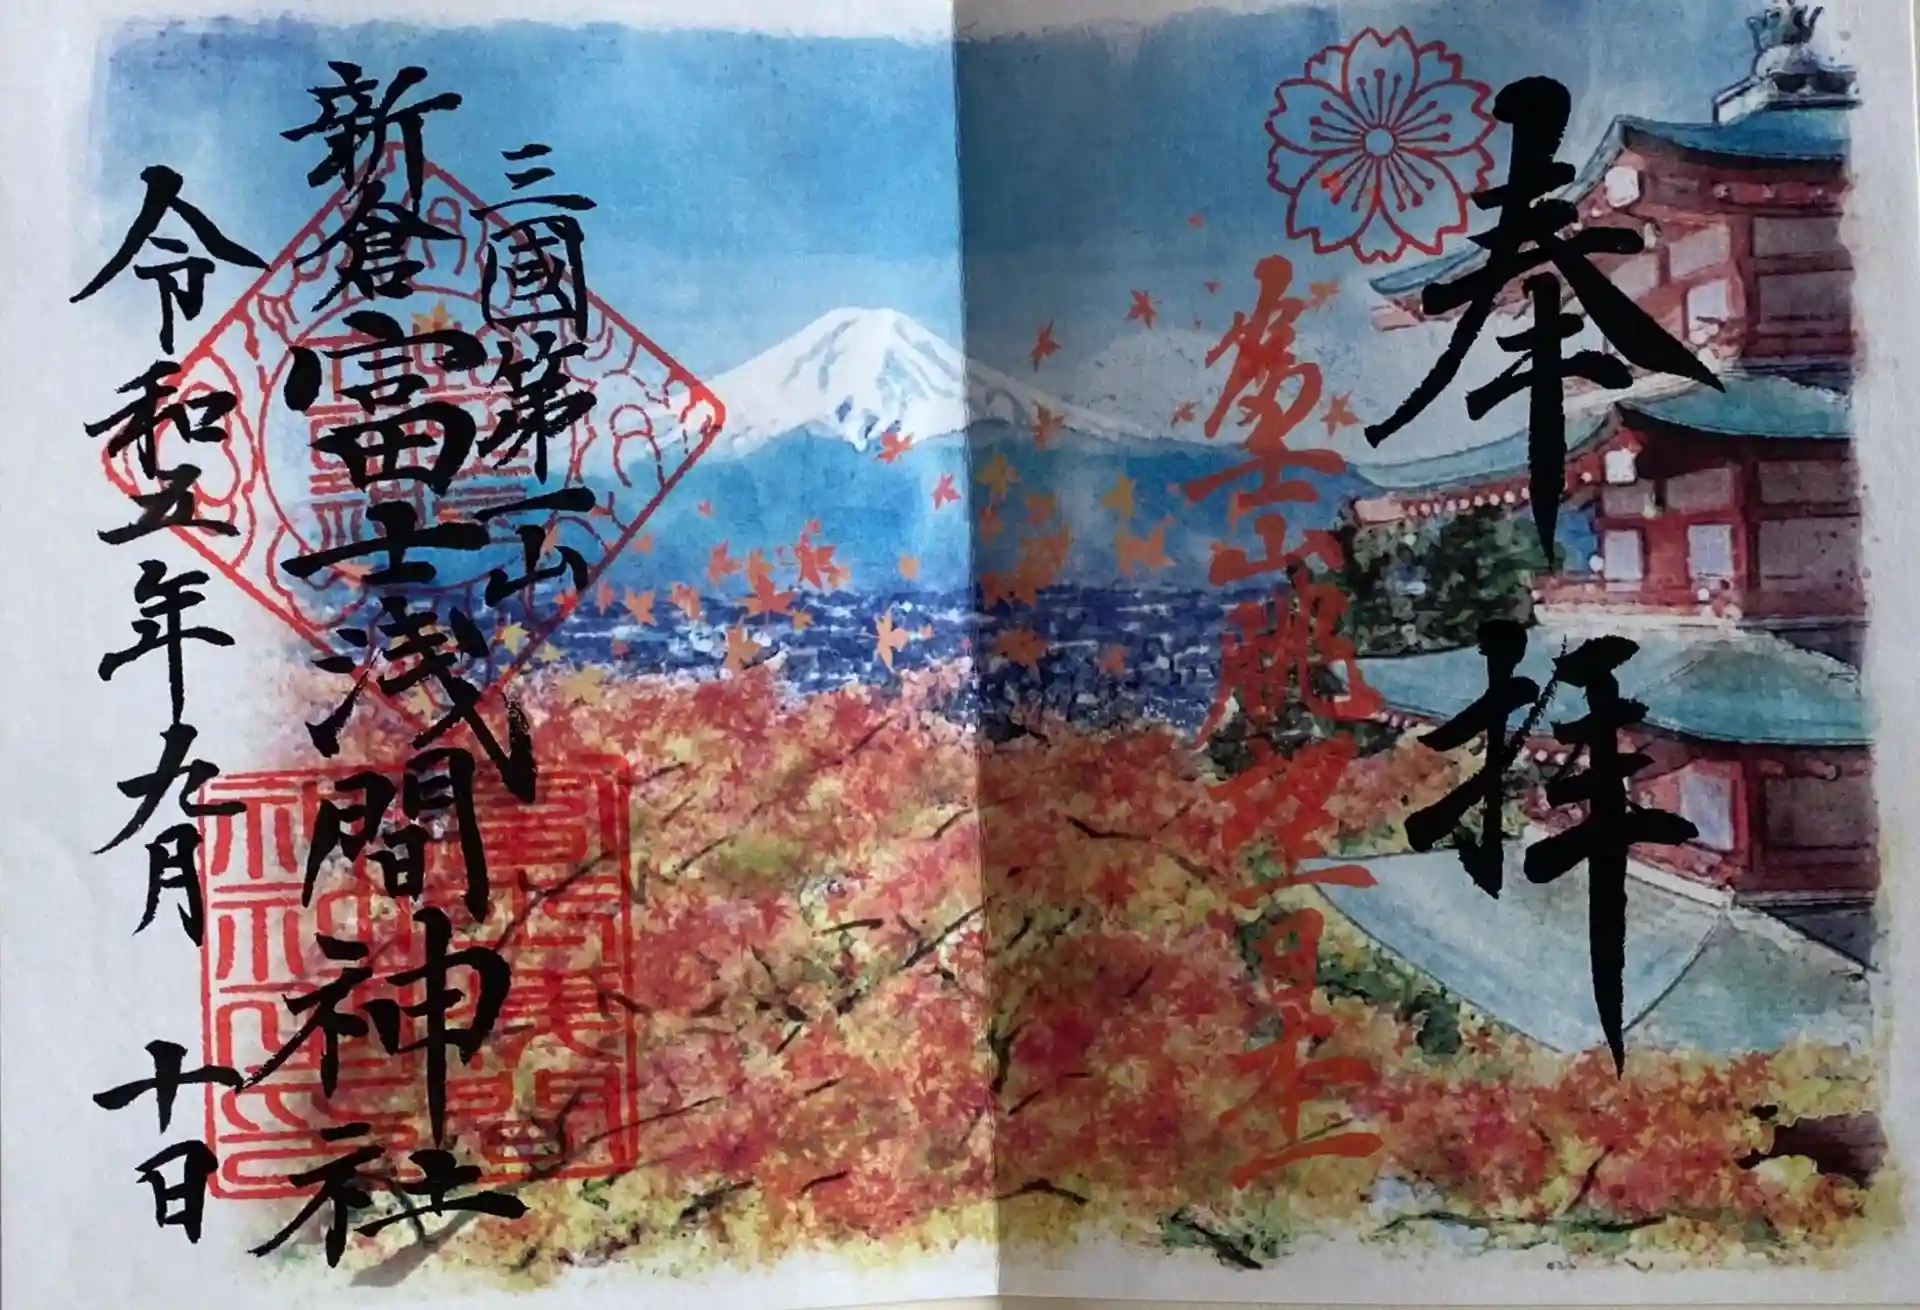 奉拝
富士山眺望日本一
三國第一山
新倉富士浅間神社
令和五年九月十日